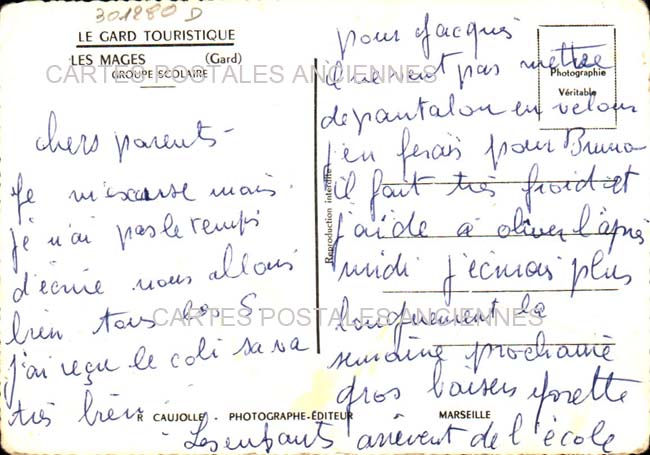 301280 D
LE GARD TOURISTIQUE
LES MAGES (Gard)
GROUPE SCOLAIRE
CARTES POSTALES ANCIENNES
chers parents -
Je m'excuse mais
je n'ai pas le temps
d'écrire nous allons
bien tous les 5
j'ai reçu le coli sa va
très bien
pour Jacques
il ne veut pas mettre
de pantalon en velour
j'en ferais pour Bruno
il fait très froid et
j'aide a oliver l'après
midi j'écrirais plus
longuement la
semaine prochaine
gros baisers yvette
Les enfants arrivent de l'école
Photographie
Véritable
Reproduction interdite
CARTES POSTALES ANCIENNES
R CAUJOLLE - PHOTOGRAPHE-ÉDITEUR MARSEILLE